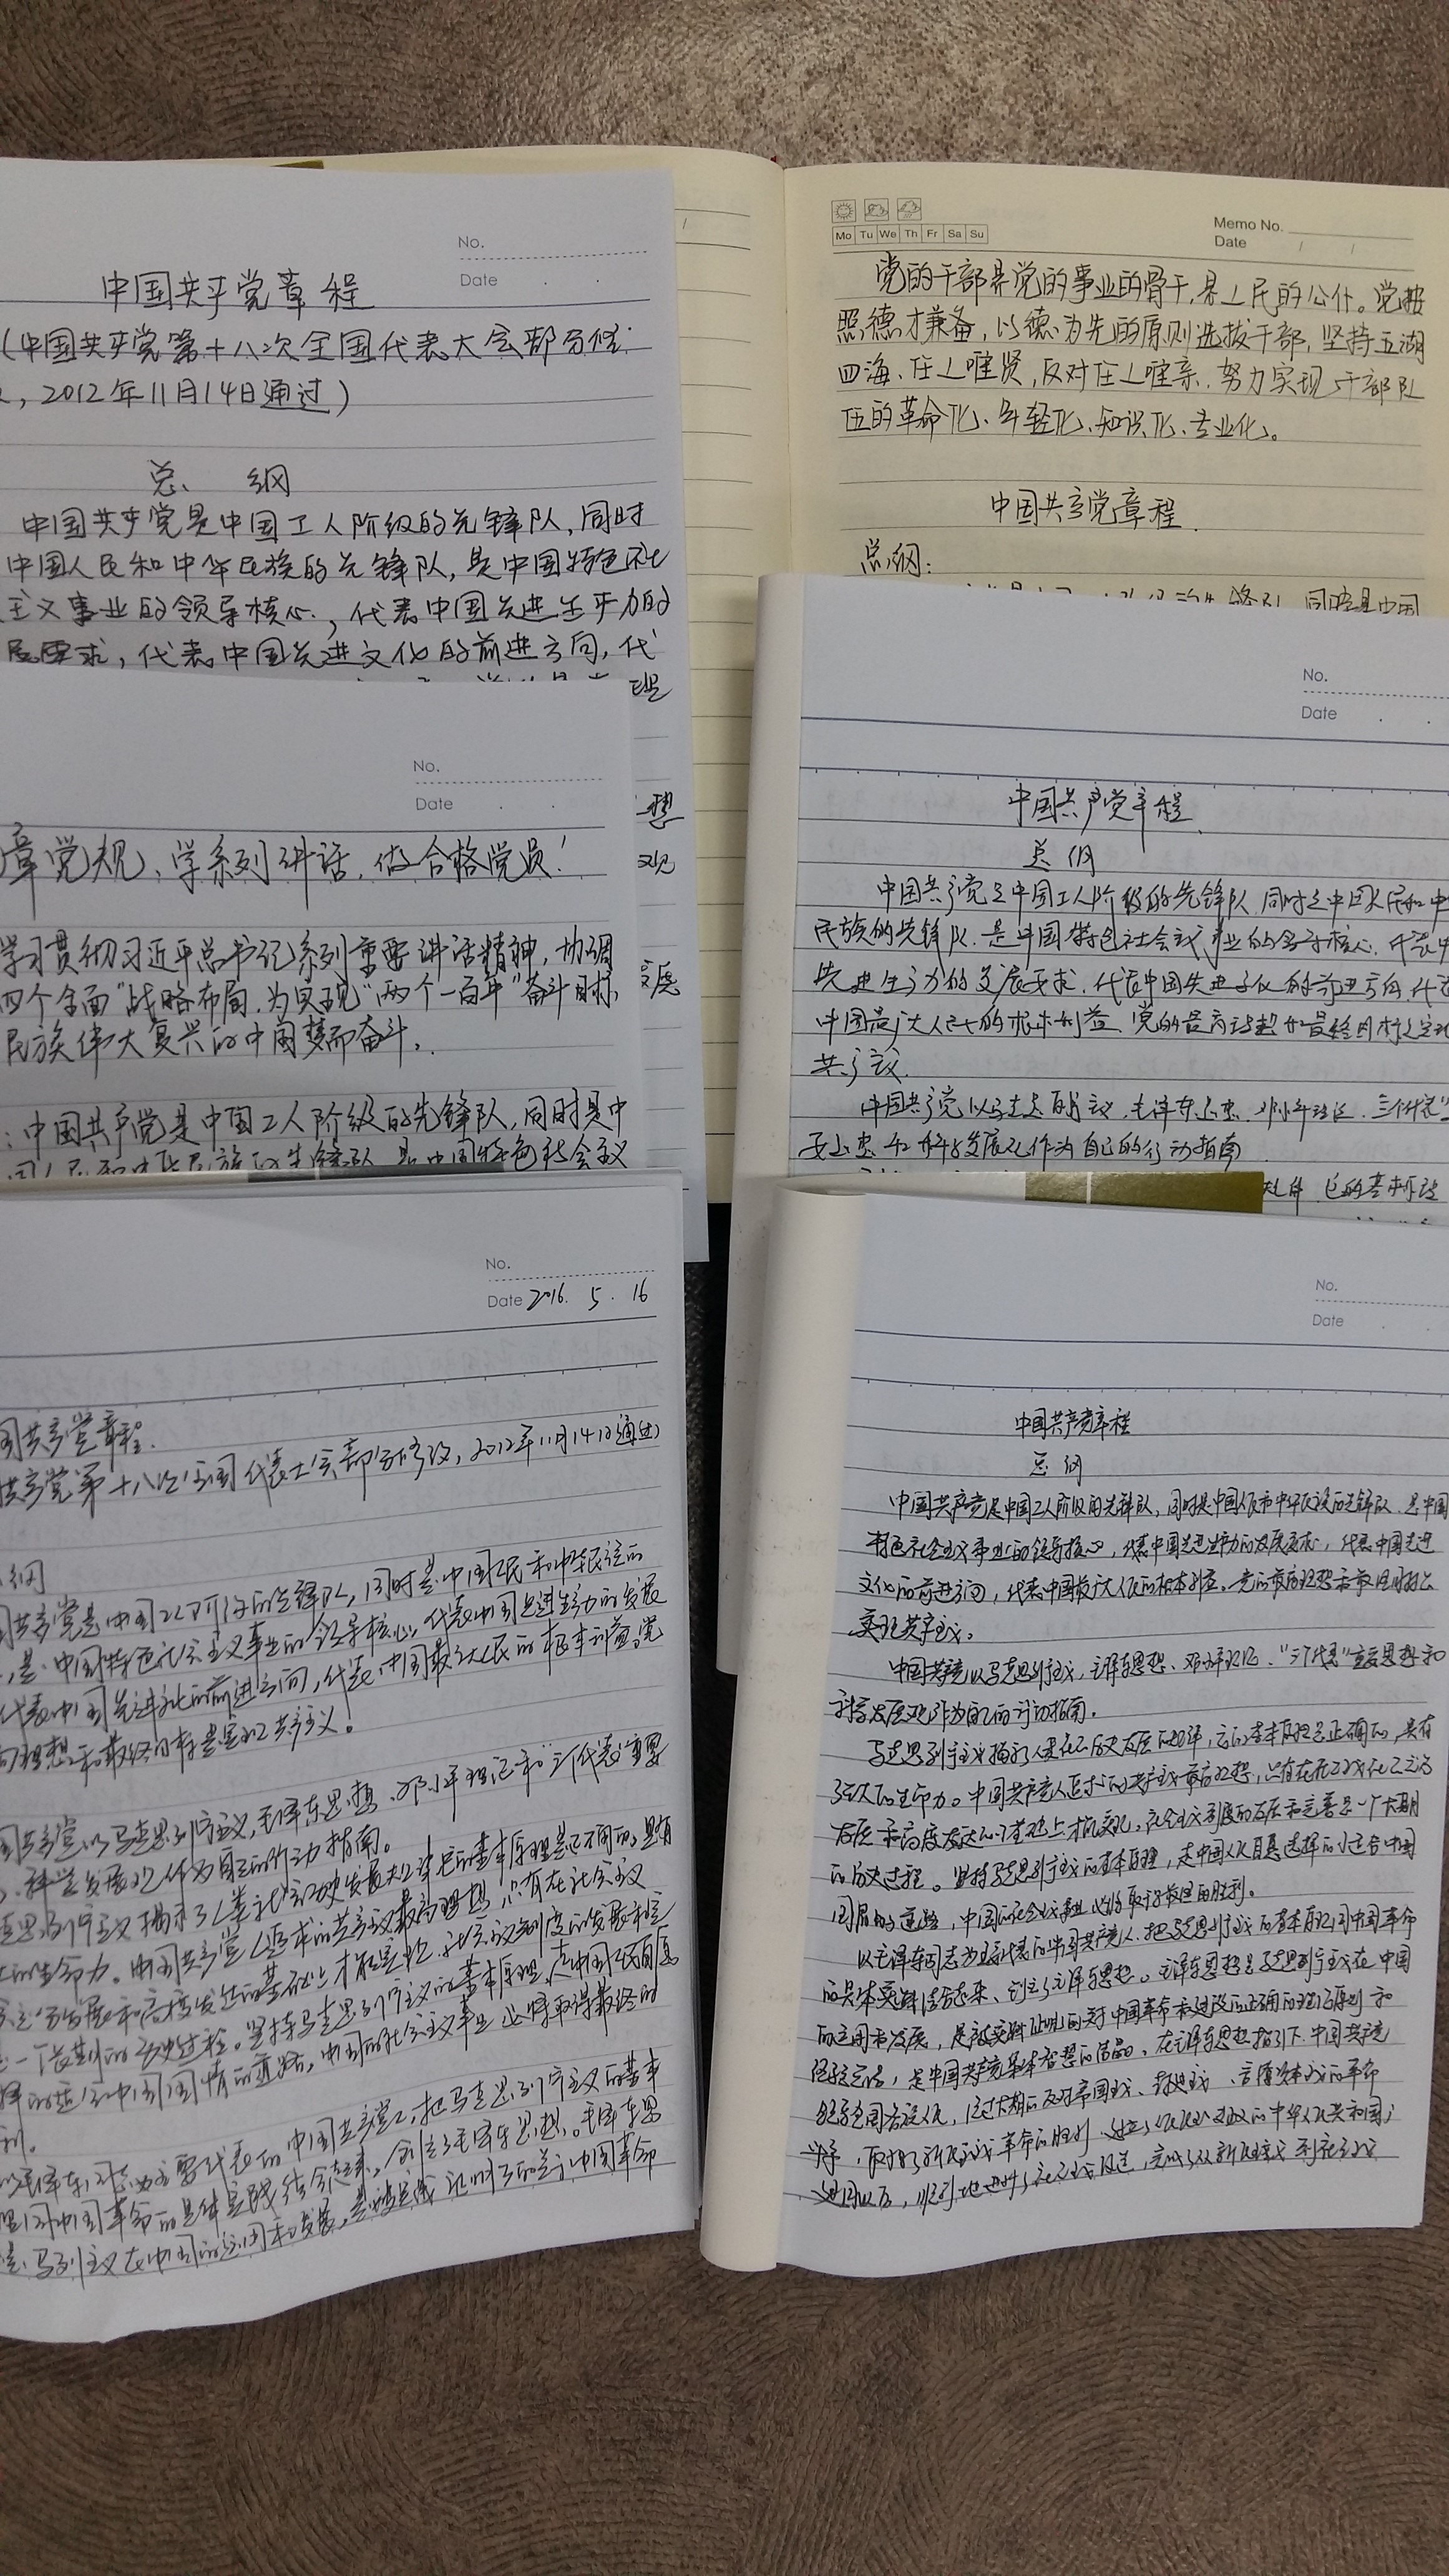 No.
Date
中国共产党章程
(中国共产党第十八次全国代表大会部分修
，2012年11月14日通过)
总 纲
中国共产党是中国工人阶级的先锋队，同时
中国人民和中华民族的先锋队，是中国特色社
主义事业的领导核心，代表中国先进生产力的
展要求，代表中国先进文化的前进方向，代
理
想
观
发展
Mo Tu We Th Fr Sa Su
Memo No.
Date / /
党的干部是党的事业的骨干，是人民的公仆。党按
照德才兼备，以德为先的原则选拔干部，坚持五湖
四海、任人唯贤，反对任人唯亲，努力实现干部队
伍的革命化、年轻化、知识化、专业化。
中国共产党章程
总纲：
同时是中国
No.
Date
章党规、学系列讲话，做合格党员！
学习贯彻习近平总书记系列重要讲话精神，协调
四个全面"战略布局，为实现"两个一百年"奋斗目标，
民族伟大复兴的中国梦而奋斗。
：中国共产党是中国工人阶级的先锋队，同时是中
国人民和中华民族的先锋队，是中国特色社会主义
No.
Date
中国共产党章程
总纲
中国共产党是中国工人阶级的先锋队，同时是中国人民和中
民族的先锋队，是中国特色社会主义事业的领导核心，代表中
先进生产力的发展要求，代表中国先进文化的前进方向，代表
中国最广大人民的根本利益。党的最高理想和最终目标是实现
共产主义。
中国共产党以马克思列宁主义、毛泽东思想、邓小平理论、"三个代表"
要思想和科学发展观作为自己的行动指南
No.
Date 2016. 5. 16
国共产党章程.
共产党第十八次全国代表大会部分修改，2012年11月14日通过)
纲
国共产党是中国工人阶级的先锋队，同时是中国人民和中华民族的
，是中国特色社会主义事业的领导核心，代表中国先进生产力的发展
代表中国先进文化的前进方向，代表中国最广大人民的根本利益。党
高理想和最终目标是实现共产主义！
国共产党以马克思列宁主义，毛泽东思想、邓小平理论和"三个代表"重要
、科学发展观作为自己的行动指南。
克思列宁主义揭示了人类社会历史发展规律，它的基本原理是正确的，具有
的生命力。中国共产党人追求的共产主义最高理想，只有在社会主义
充分发展和高度发达的基础上才能实现。社会主义制度的发展和完
一个长期的历史过程。坚持马克思列宁主义的基本原理，走中国人民自愿
择的适合中国国情的道路，中国的社会主义事业必将取得最终的
利。
以毛泽东同志为主要代表的中国共产党人，把马克思列宁主义的基本
理同中国革命的具体实践结合起来，创立了毛泽东思想。毛泽东思
是马列主义在中国的运用和发展，是被实践证明了的关于中国革命
No.
Date
中国共产党章程
总纲
中国共产党是中国工人阶级的先锋队，同时是中国人民和中华民族的先锋队，是中国
特色社会主义事业的领导核心，代表中国先进生产力的发展要求，代表中国先进
文化的前进方向，代表中国最广大人民的根本利益。党的最高理想和最终目标是
实现共产主义。
中国共产党以马克思列宁主义、毛泽东思想、邓小平理论、"三个代表"重要思想和
科学发展观作为自己的行动指南。
马克思列宁主义揭示了人类社会历史发展的规律，它的基本原理是正确的，具有
强大的生命力。中国共产党人追求的共产主义最高理想，只有在社会主义社会充分
发展和高度发达的基础上才能实现。社会主义制度的发展和完善是一个长期
的历史过程。坚持马克思列宁主义的基本原理，走中国人民自愿选择的适合中国
国情的道路，中国的社会主义事业必将取得最终的胜利。
以毛泽东同志为主要代表的中国共产党人，把马克思列宁主义的基本原理同中国革命
的具体实践结合起来，创立了毛泽东思想。毛泽东思想是马克思列宁主义在中国
的运用和发展，是被实践证明的关于中国革命和建设的正确的理论原则和
经验总结，是中国共产党集体智慧的结晶。在毛泽东思想指引下，中国共产党
领导全国各族人民，经过长期的反对帝国主义、封建主义、官僚资本主义的革命
斗争，取得了新民主主义革命的胜利，建立了人民民主专政的中华人民共和国；
建国以后，顺利地进行了社会主义改造，完成了从新民主主义到社会主义